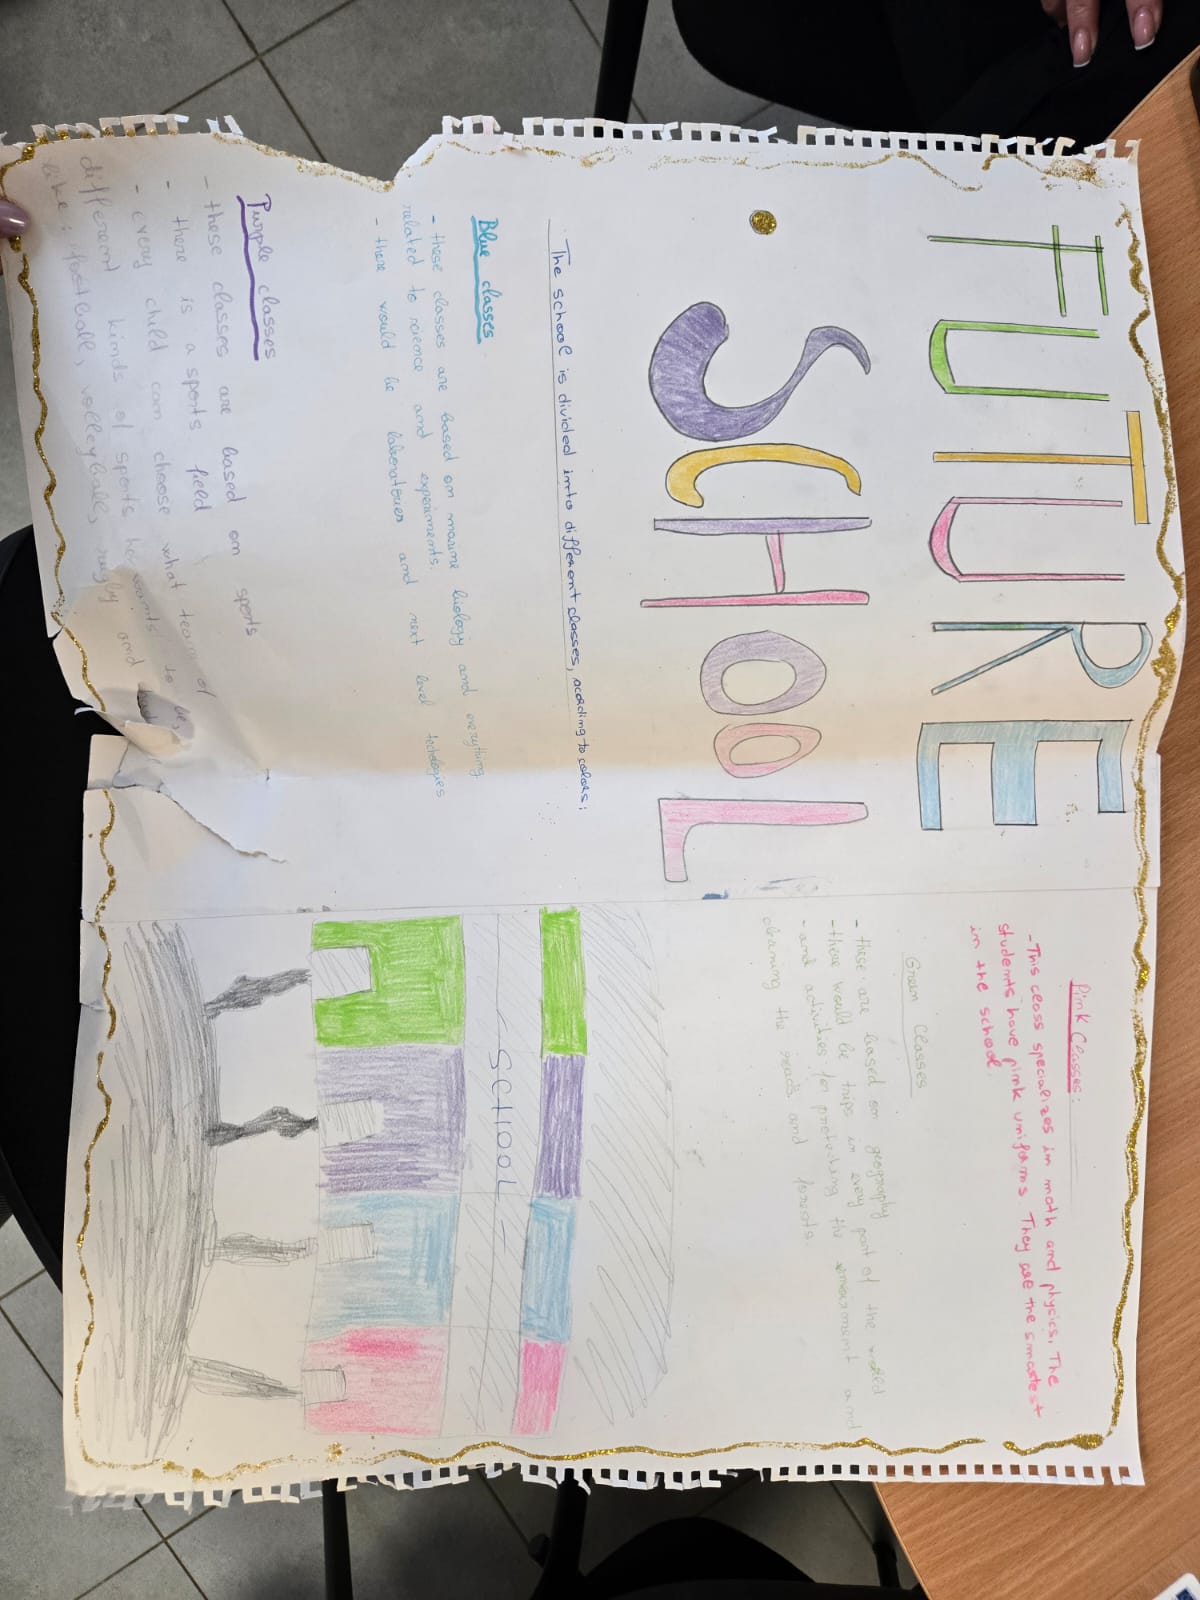 FUTURE
SCHOOL
The school is divided into different classes, acording to colors:
Blue classes
- these classes are based on marine biology and everything
related to science and experiments.
- there would be laboratories and next level technologies
Purple classes
- these classes are based on sports
- there is a sports field
- every child can choose what team of
different kinds of sports he wants to be,
like: football, volleyball, rugby and
Pink Classes:
- This class specializes in math and physics. The
students have pink uniforms They are the smartest
in the school.
Green Classes
- these are based on geography
- there would be trips in every part of the world
- and activities for protecting the and
cleaning the and forests.
SCHOOL